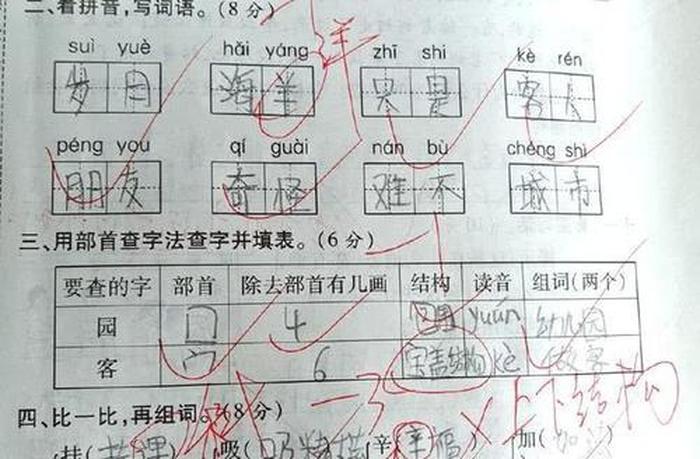 二、看拼音,写词语。(8分)
洋
suì yuè hǎi yáng zhī shi kè rén
岁月 海羊 客人
péng you qí guài nán bù chéng shì
朋友 奇怪 难不 城市
三、用部首查字法查字并填表。(6分)
要查的字 部首 除去部首有几画 结构 读音 组词(两个)
园 囗 4 yuán 幼儿园
客 宀 6 宝盖结构 kè 做客
上下结构
四、比一比,再组词。(8分)
挂( 吸( 辛(幸福) 加(